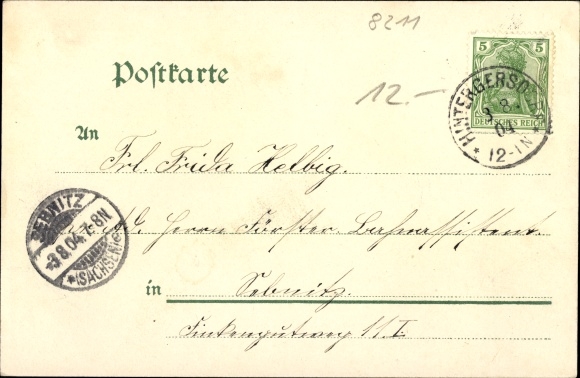 8211
Postkarte
5 5
DEUTSCHES REICH
HINTERGERSDORF
3 8
04
* 12-1N *
12.-
An
Frl. Frida Helbig.
Herrn Förster, Bahnassistent.
SEBNITZ
-3.8.04.7-8N
*(SACHSEN)*
in
Sebnitz.
Finkengutweg 11 I.